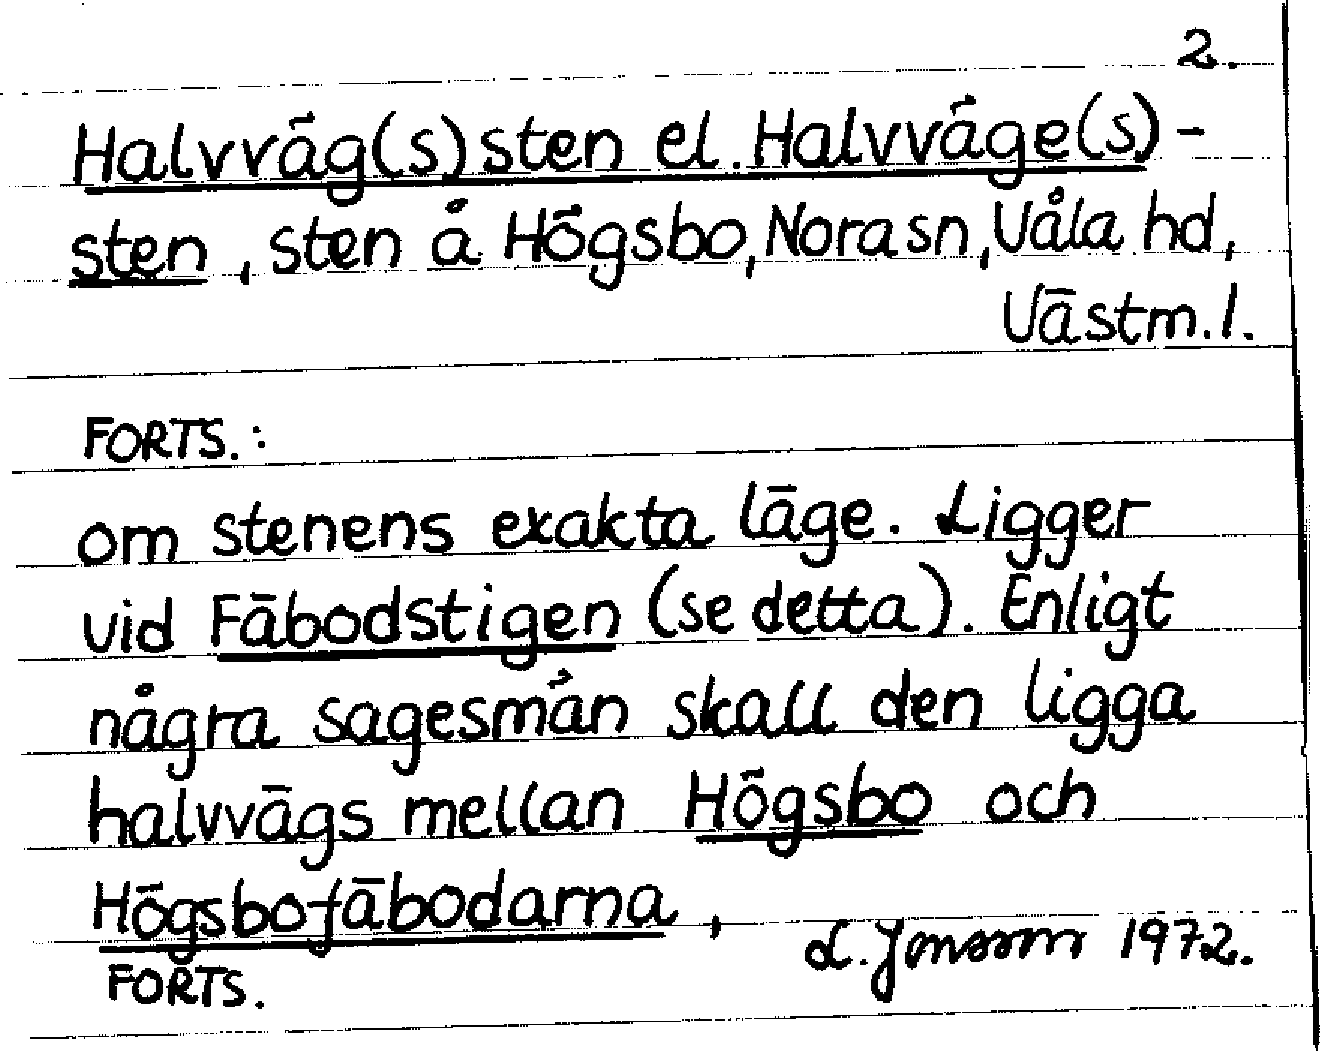 2.
Halvväg(s)sten el. Halvväge(s)-
sten, sten å Högsbo, Nora sn, Våla hd,
Västm. l.
FORTS.:
om stenens exakta läge. Ligger
vid Fäbodstigen (se detta). Enligt
några sagesmän skall den ligga
halvvägs mellan Högsbo och
Högsbofäbodarna,
L. Jonsson 1972.
FORTS.